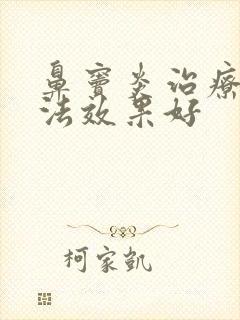 鼻窦炎治疗
法效果好
柯家凯